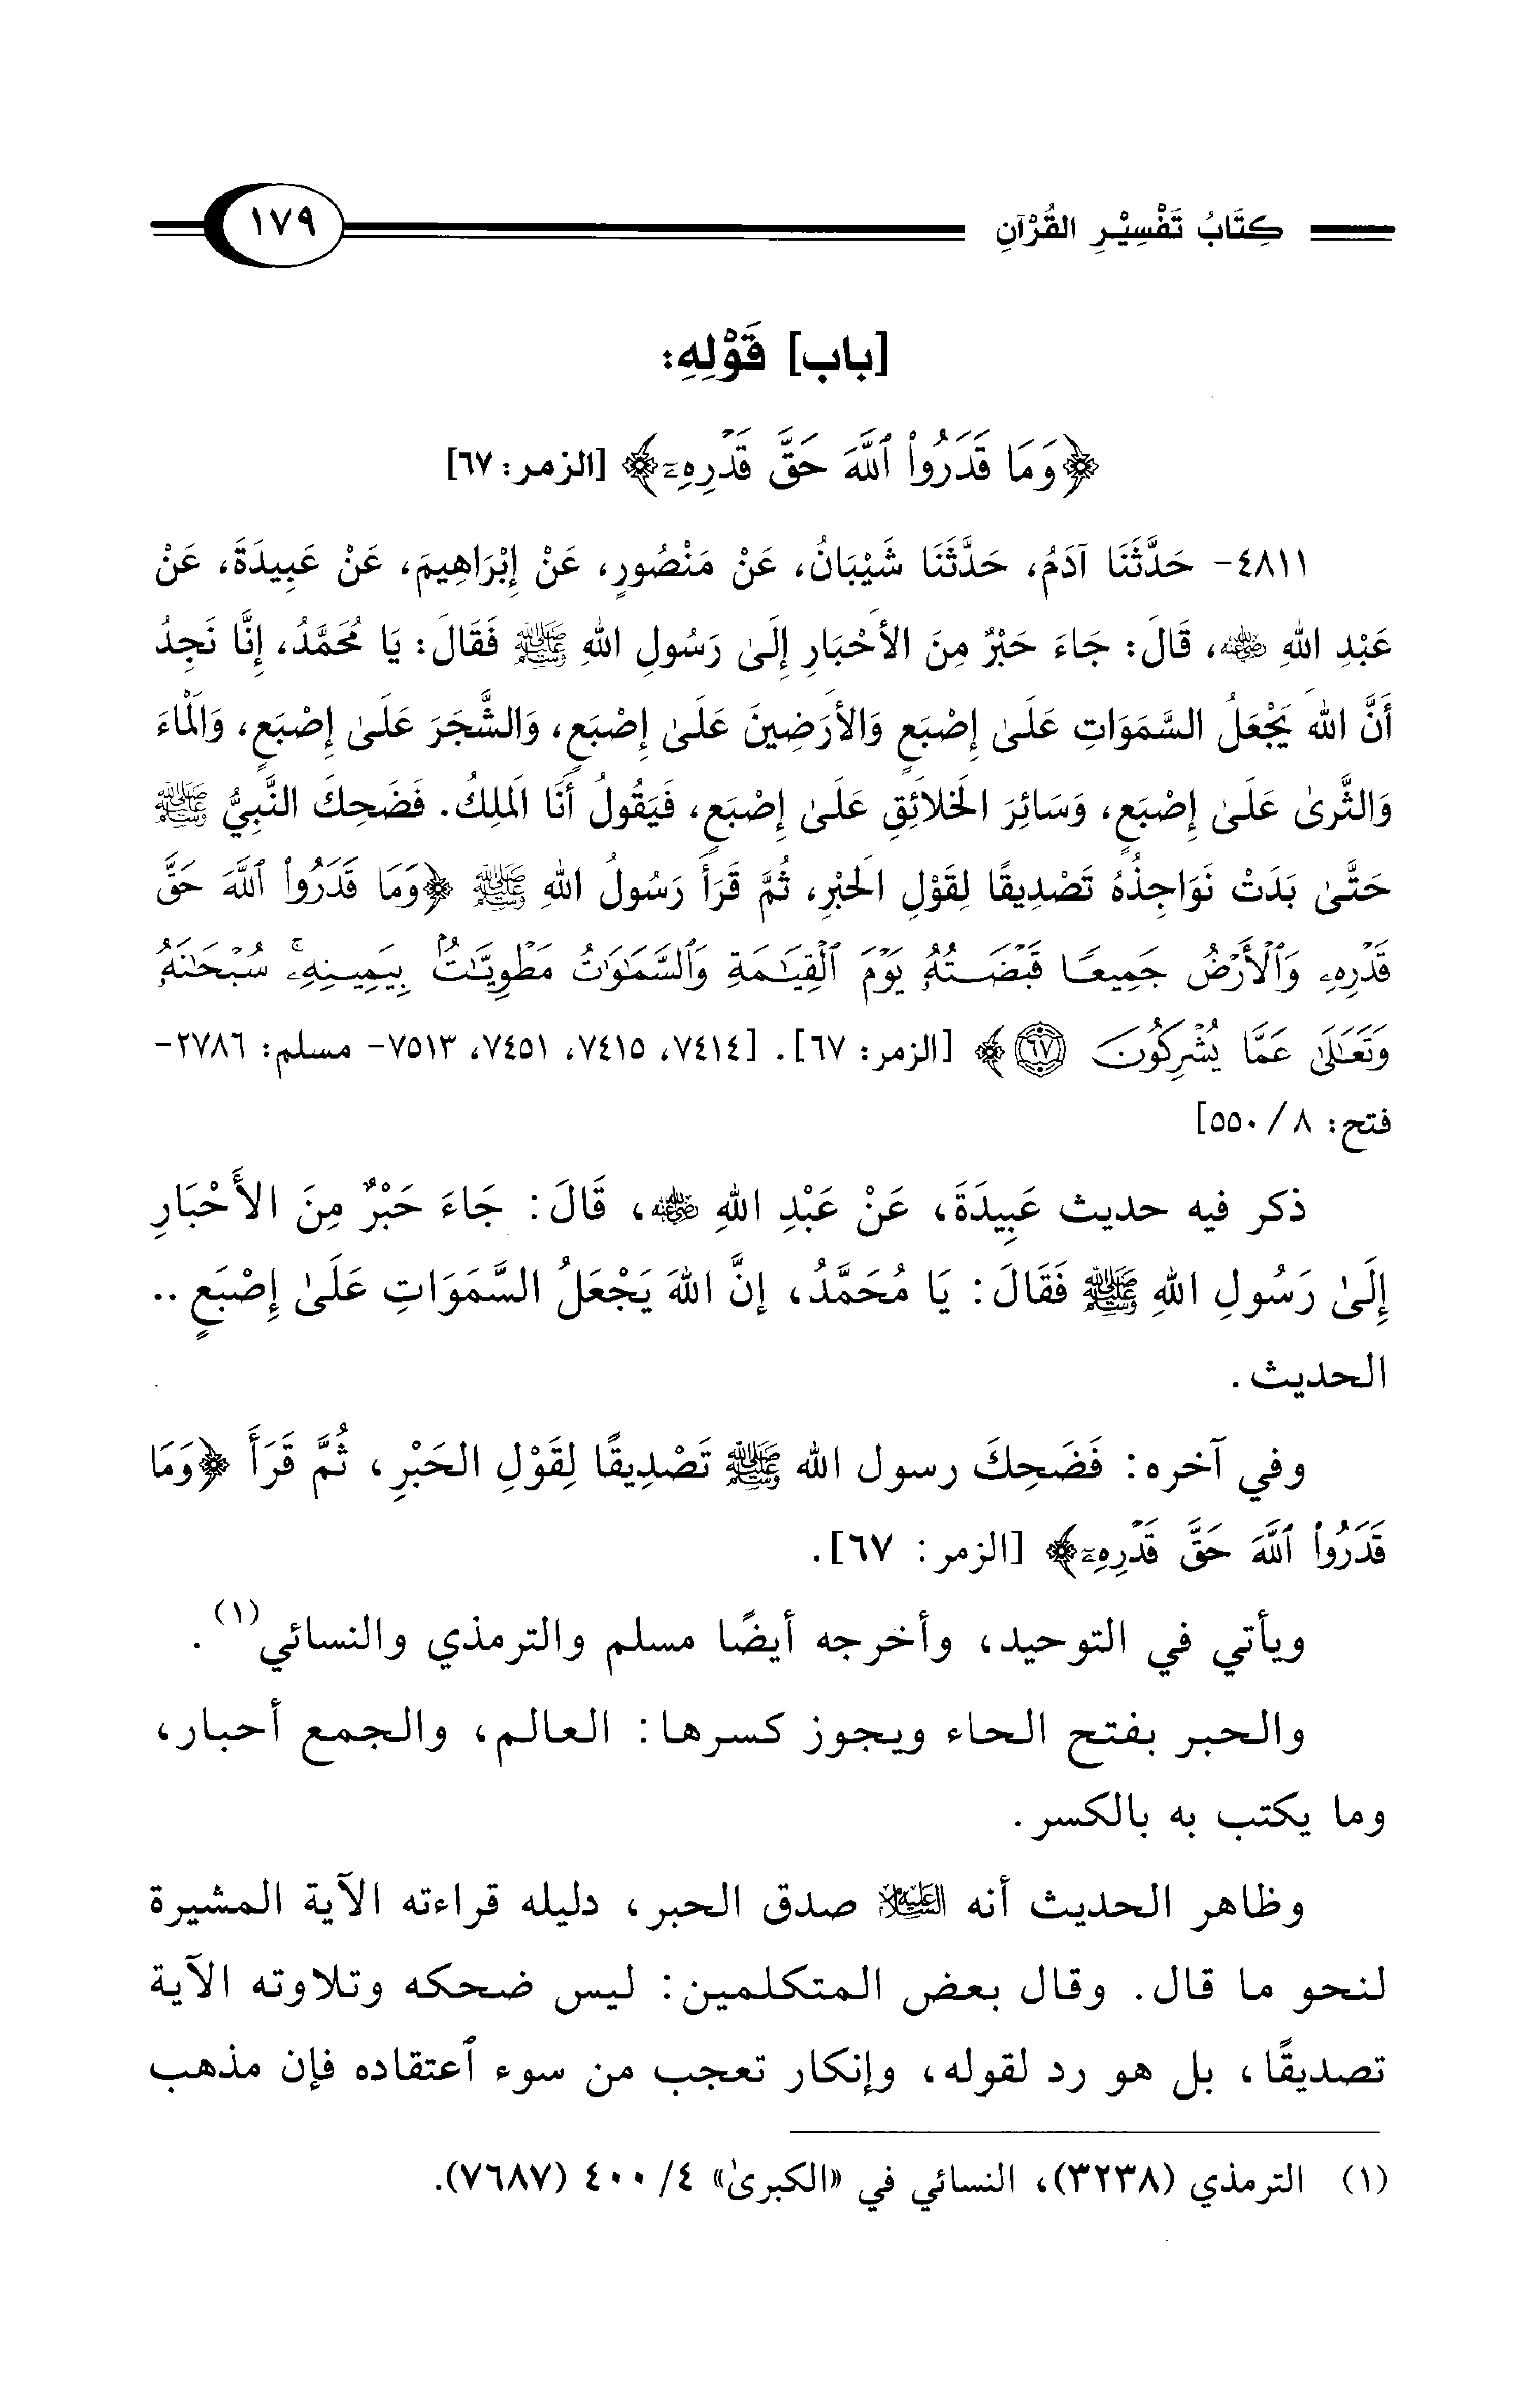 كِتَابُ تَفْسِيْرِ القُرْآنِ ١٧٩
[باب] قَوْلِهِ:
﴿وَمَا قَدَرُوا۟ ٱللَّهَ حَقَّ قَدْرِهِۦٓ﴾ [الزمر: ٦٧]
٤٨١١- حَدَّثَنَا آدَمُ، حَدَّثَنَا شَيْبَانُ، عَنْ مَنْصُورٍ، عَنْ إِبْرَاهِيمَ، عَنْ عَبِيدَةَ، عَنْ
عَبْدِ اللهِ رضي الله عنه، قَالَ: جَاءَ حَبْرٌ مِنَ الأَحْبَارِ إِلَىٰ رَسُولِ اللهِ ﷺ فَقَالَ: يَا مُحَمَّدُ، إِنَّا نَجِدُ
أَنَّ اللهَ يَجْعَلُ السَّمَوَاتِ عَلَىٰ إِصْبَعٍ وَالأَرَضِينَ عَلَىٰ إِصْبَعٍ، وَالشَّجَرَ عَلَىٰ إِصْبَعٍ، وَالْمَاءَ
وَالثَّرىٰ عَلَىٰ إِصْبَعٍ، وَسَائِرَ الْخَلَائِقِ عَلَىٰ إِصْبَعٍ، فَيَقُولُ أَنَا الْمَلِكُ. فَضَحِكَ النَّبِيُّ ﷺ
حَتَّىٰ بَدَتْ نَوَاجِذُهُ تَصْدِيقًا لِقَوْلِ الْحَبْرِ، ثُمَّ قَرَأَ رَسُولُ اللهِ ﷺ ﴿وَمَا قَدَرُوا۟ ٱللَّهَ حَقَّ
قَدْرِهِۦ وَٱلْأَرْضُ جَمِيعًا قَبْضَتُهُۥ يَوْمَ ٱلْقِيَـٰمَةِ وَٱلسَّمَـٰوَٰتُ مَطْوِيَّـٰتٌۢ بِيَمِينِهِۦۚ سُبْحَـٰنَهُۥ
وَتَعَـٰلَىٰ عَمَّا يُشْرِكُونَ ٦٧﴾ [الزمر: ٦٧]. [٧٤١٤، ٧٤١٥، ٧٤٥١، ٧٥١٣- مسلم: ٢٧٨٦-
فتح: ٨/ ٥٥٠]
ذكر فيه حديث عَبِيدَةَ، عَنْ عَبْدِ اللهِ رضي الله عنه، قَالَ: جَاءَ حَبْرٌ مِنَ الأَحْبَارِ
إِلَىٰ رَسُولِ اللهِ ﷺ فَقَالَ: يَا مُحَمَّدُ، إِنَّ اللهَ يَجْعَلُ السَّمَوَاتِ عَلَىٰ إِصْبَعٍ ..
الحديث.
وفي آخره: فَضَحِكَ رسول الله ﷺ تَصْدِيقًا لِقَوْلِ الحَبْرِ، ثُمَّ قَرَأَ ﴿وَمَا
قَدَرُوا۟ ٱللَّهَ حَقَّ قَدْرِهِۦٓ﴾ [الزمر: ٦٧].
ويأتي في التوحيد، وأخرجه أيضًا مسلم والترمذي والنسائي(١).
والحبر بفتح الحاء ويجوز كسرها: العالم، والجمع أحبار،
وما يكتب به بالكسر.
وظاهر الحديث أنه عليه السلام صدق الحبر، دليله قراءته الآية المشيرة
لنحو ما قال. وقال بعض المتكلمين: ليس ضحكه وتلاوته الآية
تصديقًا، بل هو رد لقوله، وإنكار تعجب من سوء ٱعتقاده فإن مذهب
(١) الترمذي (٣٢٣٨)، النسائي في «الكبرىٰ» ٤/ ٤٠٠ (٧٦٨٧).